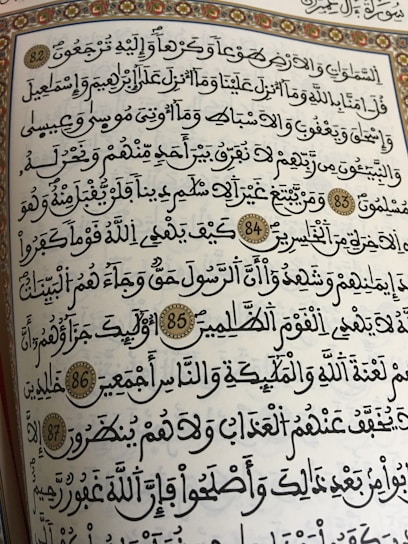 سورة ءال عمران
السَّمَٰوَٰتِ وَالَارْضِ طَوْعاً وَكَرْهاً وَإِلَيْهِ تُرْجَعُونَ 82
قُلَ اٰمَنَّا بِاللَّهِ وَمَا أُنزِلَ عَلَيْنَا وَمَا أُنزِلَ عَلَىٰ إِبْرَٰهِيمَ وَإِسْمَٰعِيلَ
وَإِسْحَٰقَ وَيَعْقُوبَ وَالَاسْبَاطِ وَمَا أُوتِيَ مُوسِىٰ وَعِيسِىٰ
وَالنَّبِيٓـُٔونَ مِن رَّبِّهِمْ لَا نُفَرِّقُ بَيْنَ أَحَدٍ مِّنْهُمْ وَنَحْنُ لَهُ
مُسْلِمُونَ 83 وَمَنْ يَّبْتَغِ غَيْرَ الِاسْلَٰمِ دِيناً فَلَنْ يُّقْبَلَ مِنْهُ وَهُوَ
الَاخِرَةِ مِنَ الْخَٰسِرِينَ 84 كَيْفَ يَهْدِي اللَّهُ قَوْماً كَفَرُوا
إِيمَٰنِهِمْ وَشَهِدُوا أَنَّ الرَّسُولَ حَقٌّ وَجَاءَهُمُ الْبَيِّنَٰتُ
لَا يَهْدِي الْقَوْمَ الظَّٰلِمِينَ 85 أُوْلَٰئِكَ جَزَاؤُهُمُ أَنَّ
لَعْنَةَ اللَّهِ وَالْمَلَٰئِكَةِ وَالنَّاسِ أَجْمَعِينَ 86 خَٰلِدِينَ
لَا يُخَفَّفُ عَنْهُمُ الْعَذَابُ وَلَا هُمْ يُنظَرُونَ 87 إِلَّا
مِن بَعْدِ ذَٰلِكَ وَأَصْلَحُوا فَإِنَّ اللَّهَ غَفُورٌ رَّحِيمٌ